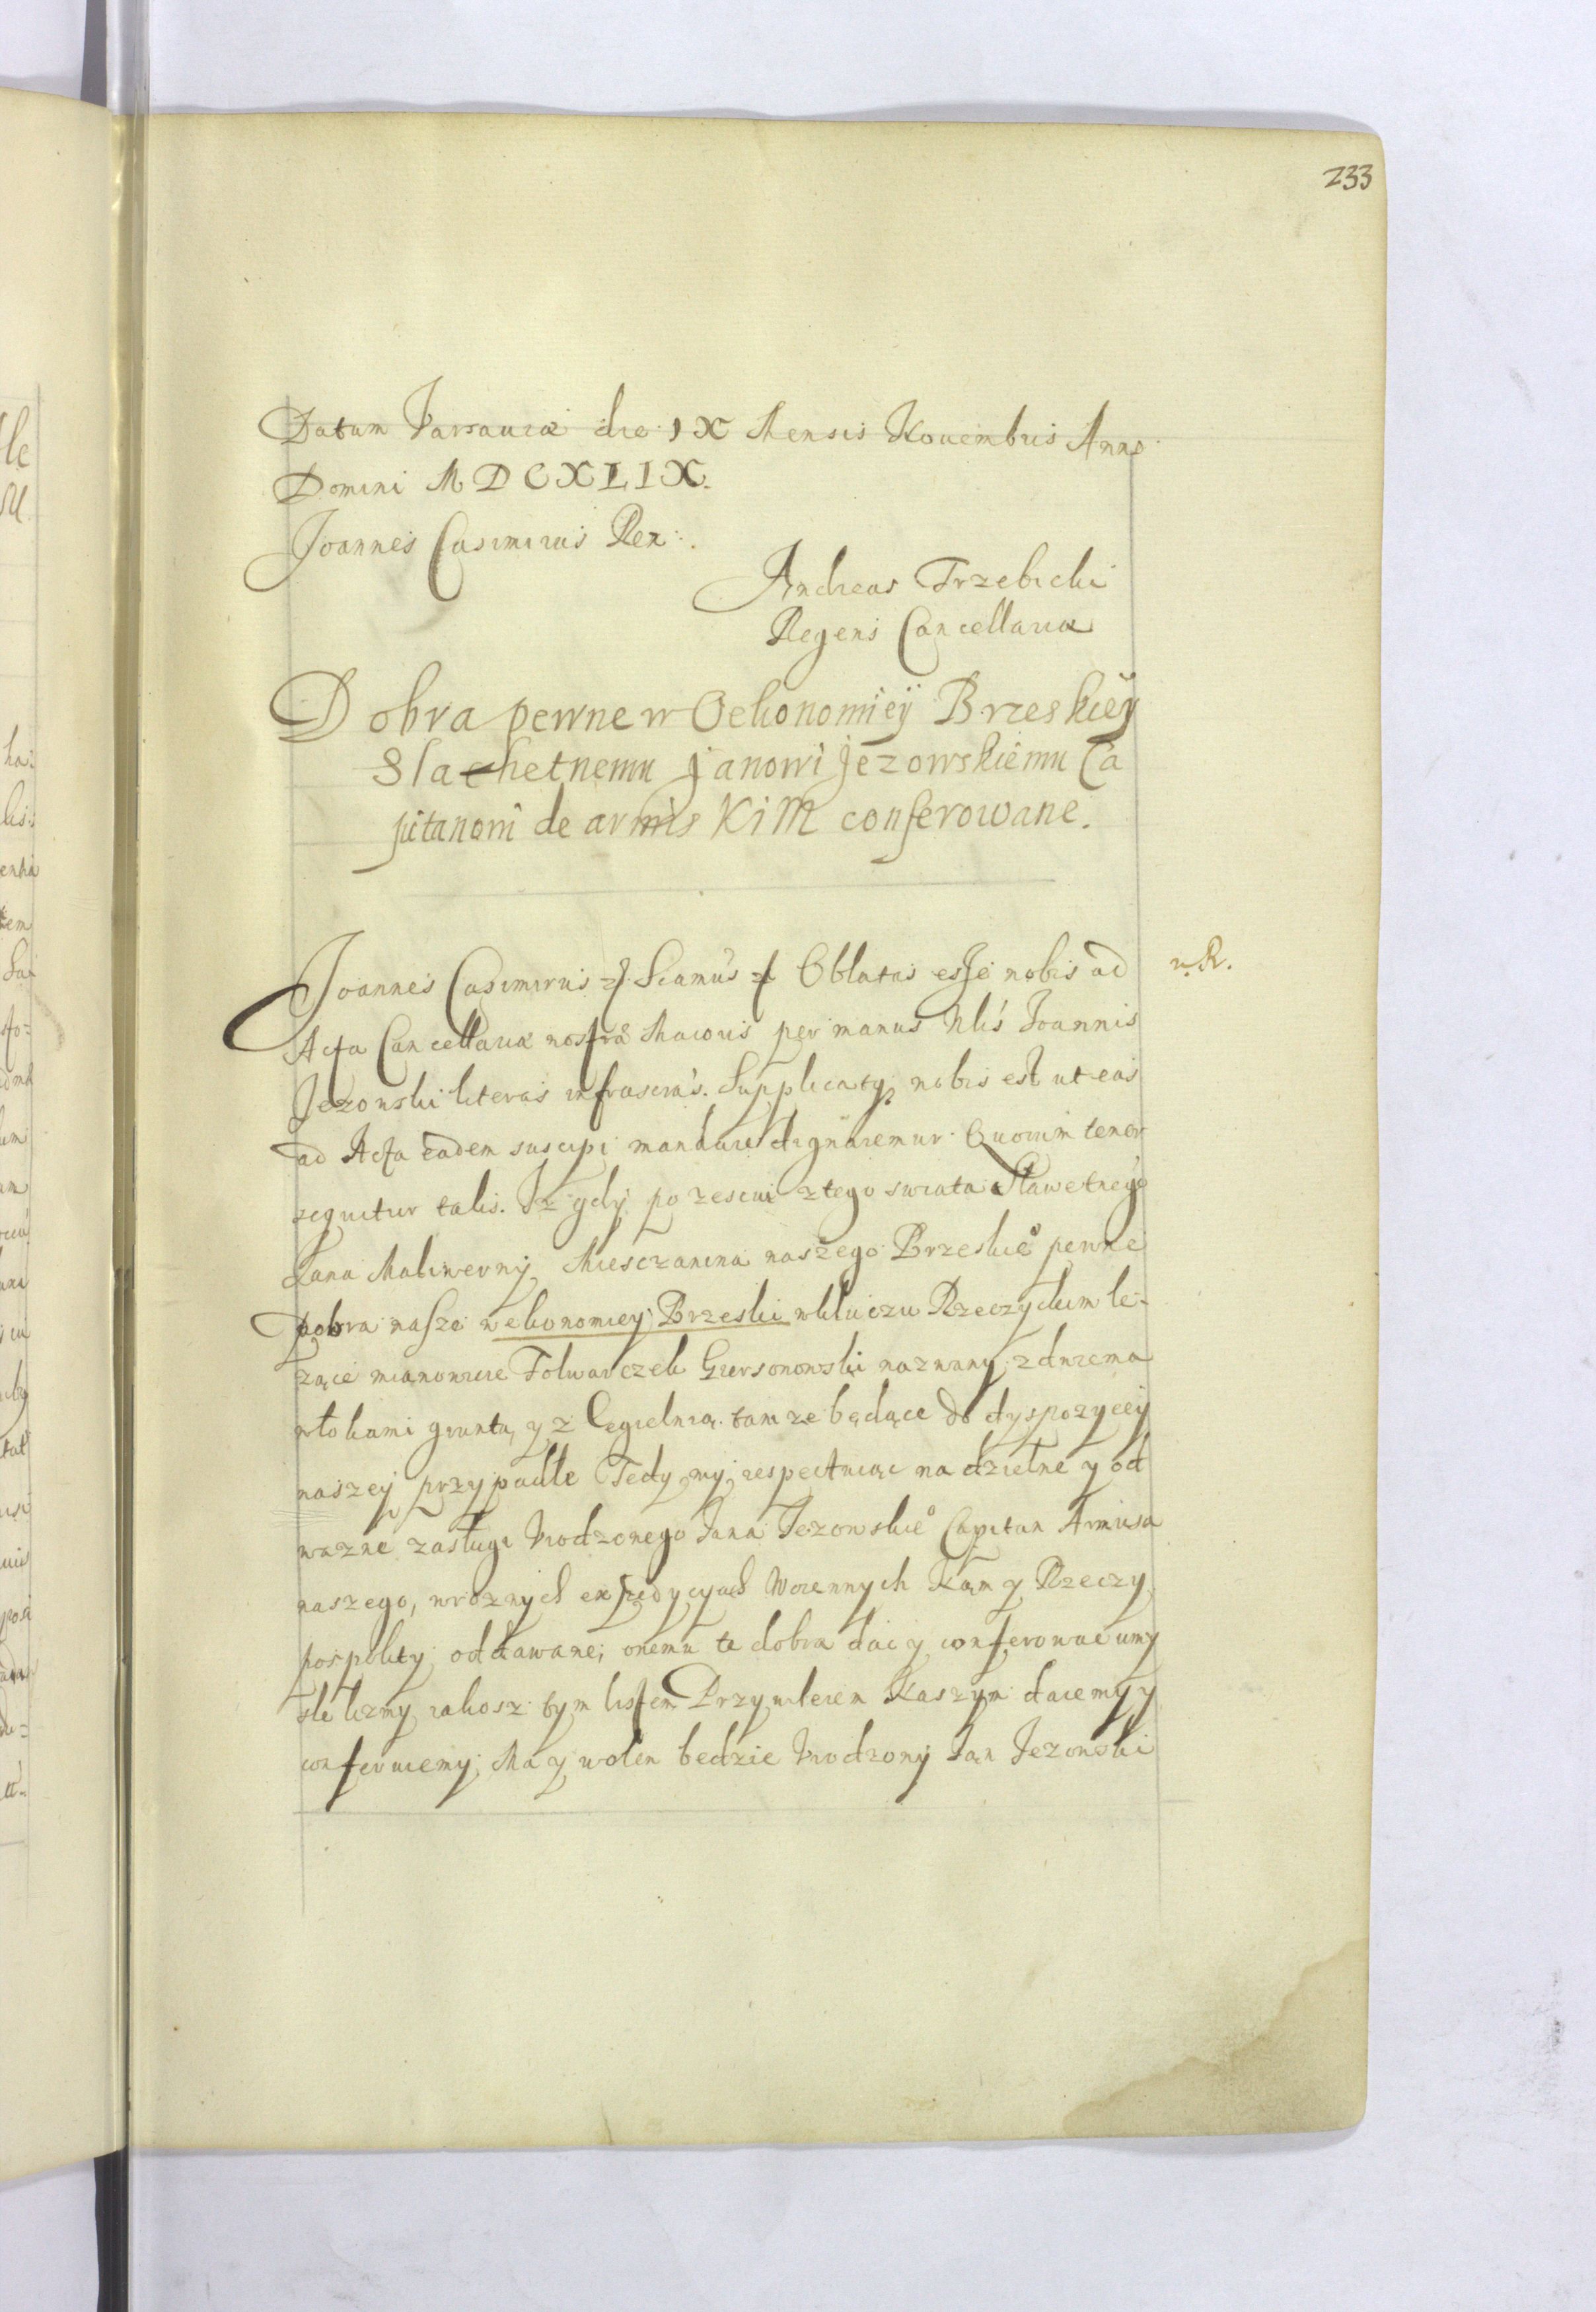 233
Datum Varsauiæ die IX Mensis Nouembris Anno
Domini MDCXLIX.
Joannes Casimirus Rex.
Andreas Trzebicki
Regens Cancellariæ
Dobra pewne w Oekonomiey Brzeskiey
Slachetnemu Janowi Jezowskiemu Ca
pitanowi de armis KiM conferowane.
Joannes Casimirus Sciamus Oblatas esse nobis ad
v. R.
Acta Cancellariæ nostræ Maioris per manus Nlis Joannis
Jezowski literas infrascras. Supplicatq nobis est ut eas
ad Acta eadem suscipi mandare dignaremur. Quorum tenor
sequitur talis. Iz gdy po zesciu z tego swiata Sławetnego
Jana Maliwerny Miesczanina naszego Brzeskieo pewne
Dobra nasze w ekonomiey Brzeski wkluczu Rzeczyckim le-
zące mianowicie Folwarczek Giersonowski nazwany z dwiema
włokami gruntu, y z Cegielnią tamze będące do dyspozycey
naszey przypadłe Tedy my respectuiąc na dzielne y od
wazne zasługi Vrodzonego Jana Jezowskieo Capitan Armisa
naszego, wroznych expedycyach Woiennych Nam y Rzeczy
pospolity oddawane, onemu te dobra dac y conferowac umy
slelismy iakosz tym listem Przywileiem Naszym daiemy y
conferuiemy, Ma y wolen bedzie Vrodzony Jan Jezowski